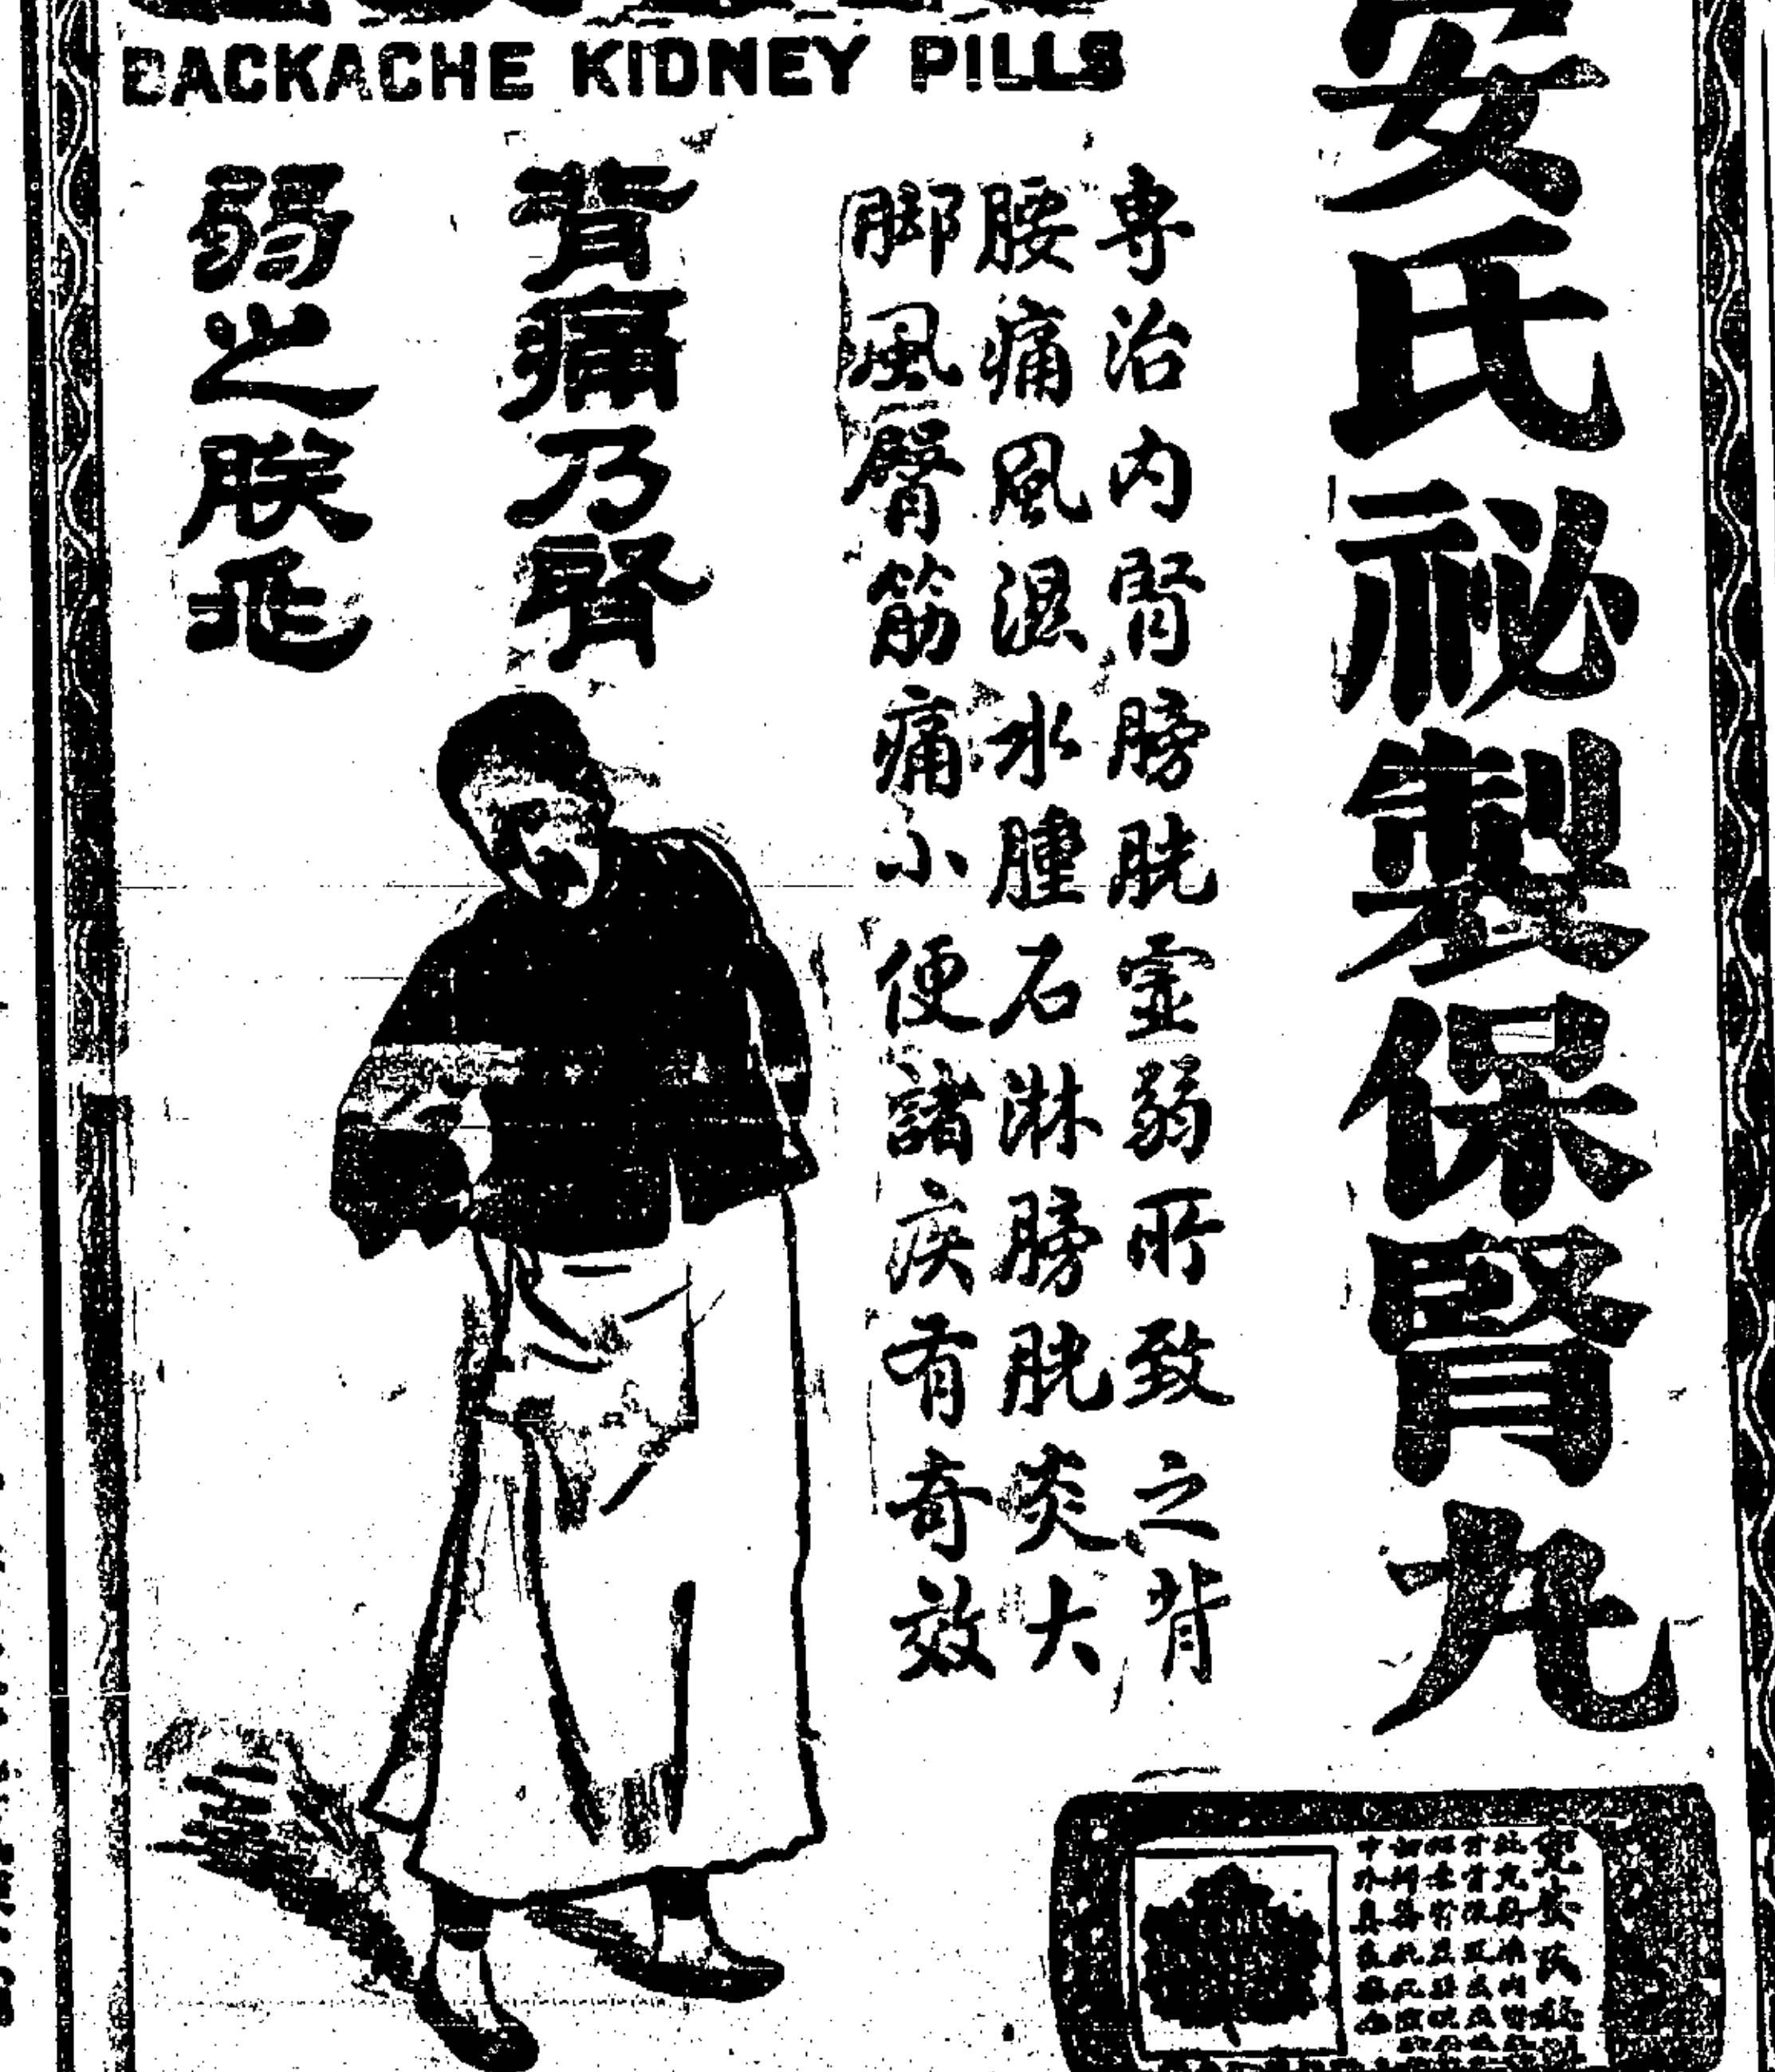 BACKACHE KIDNEY PILLS
安氏祕製保腎丸
專治内腎膀胱虛弱所致之背
腰痛風濕水腫石淋膀胱炎大
脚風臀筋痛小便諸疾有奇效
背痛乃腎
弱之朕兆